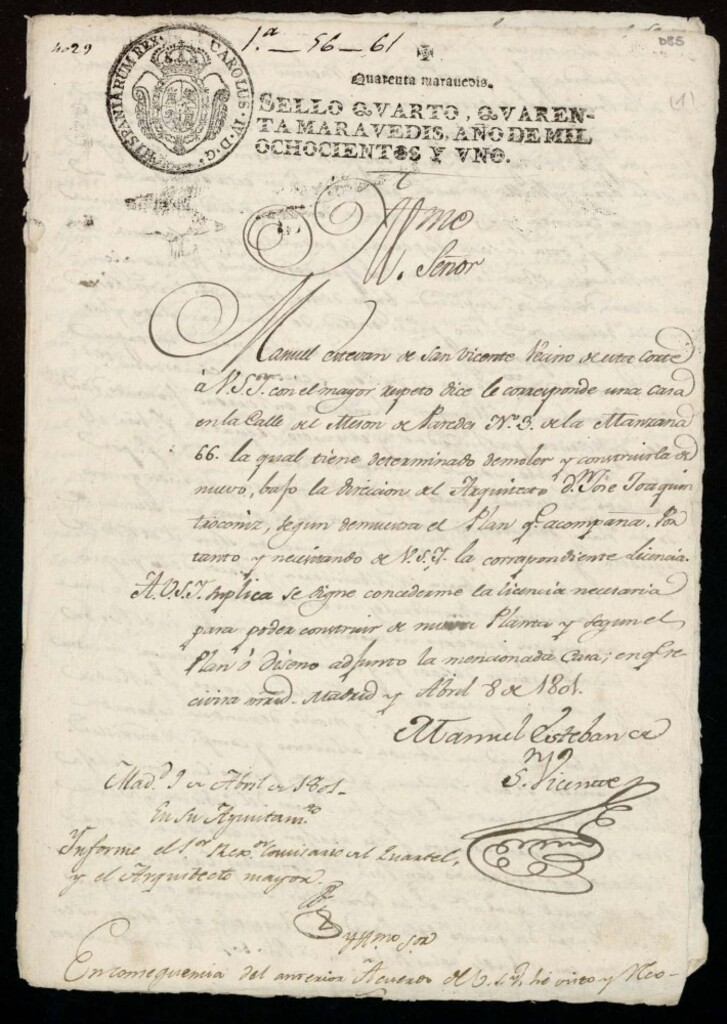 4-29
1.ª _ 56 _ 61
D85
(1)
CAROLUS · IV · D · G · HISPANIARUM REX ·
Quarenta maravedis.
SELLO QVARTO, QVAREN-
TA MARAVEDIS, AÑO DE MIL
OCHOCIENTOS Y VNO.
Yllmo
Señor
Manuel estevan de San Vicente Vecino de esta Corte
à V.S.Y. con el mayor respeto dice le corresponde una casa
en la Calle del Meson de Paredes Nº. 3. de la Manzana
66. la qual tiene determinado demoler y construirla de
nuevo, bajo la direcion del Arquitecto dn. Jose Joaquin
troconiz, segun demuestra el Plan q.e acompaña. Por
tanto y necesitando de V.S.Y. la correspondiente Licencia.
A.V.S.Y. suplica se digne concederme la licencia necesaria
para poder construir de nueva Planta y segun el
Plan ò Diseño adjunto la mencionada Casa; en q.e re-
civirá mrd. Madrid y Abril 8 de 1801.
Manuel Esteban de
S. Vicente
Mad.d 9 de Abril de 1801.
En su Ayuntam.to
Informe el S.or Rex.or Comisario del Quartel,
y el Arquitecto mayor.
Yllmo Sor
En consequencia del anterior Acuerdo de V.S.Y. he visto y Reco-